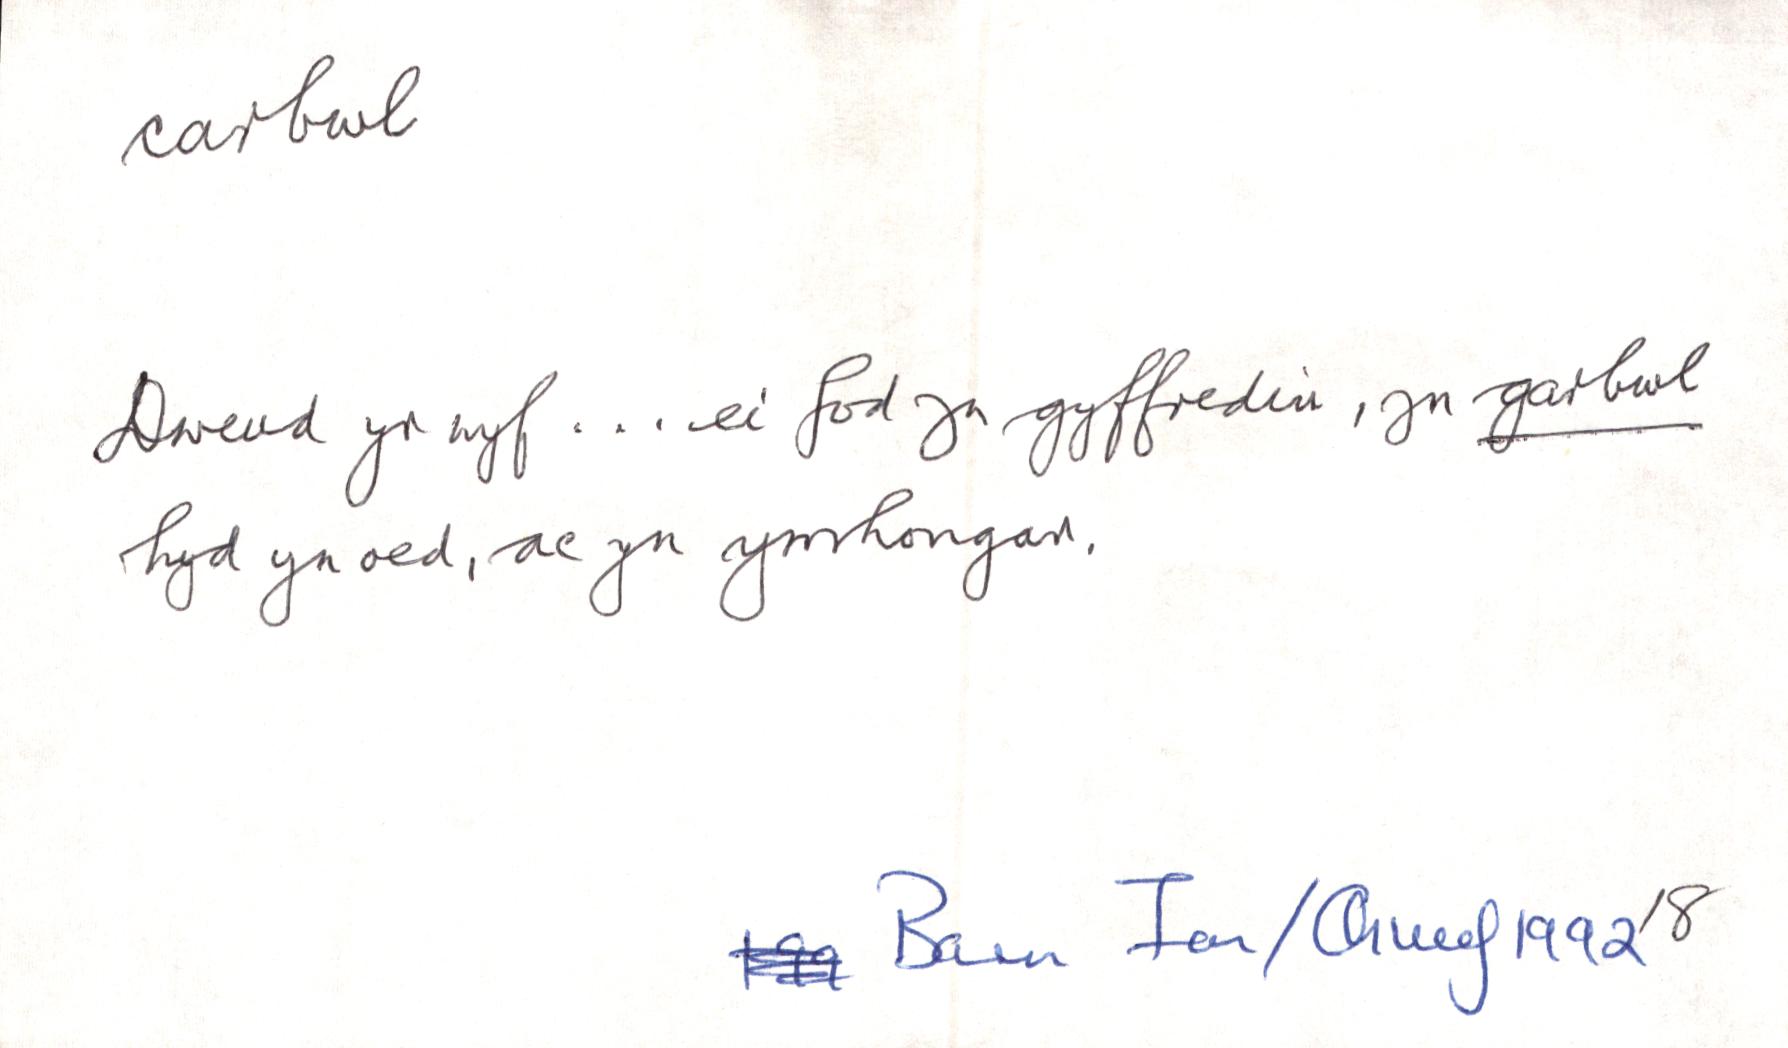 carbwl
Dweud yr wyf . . . ei fod yn gyffredin, yn garbwl
hyd yn oed, ac yn ymhongar.
Barn Ion/Chwef 1992/8